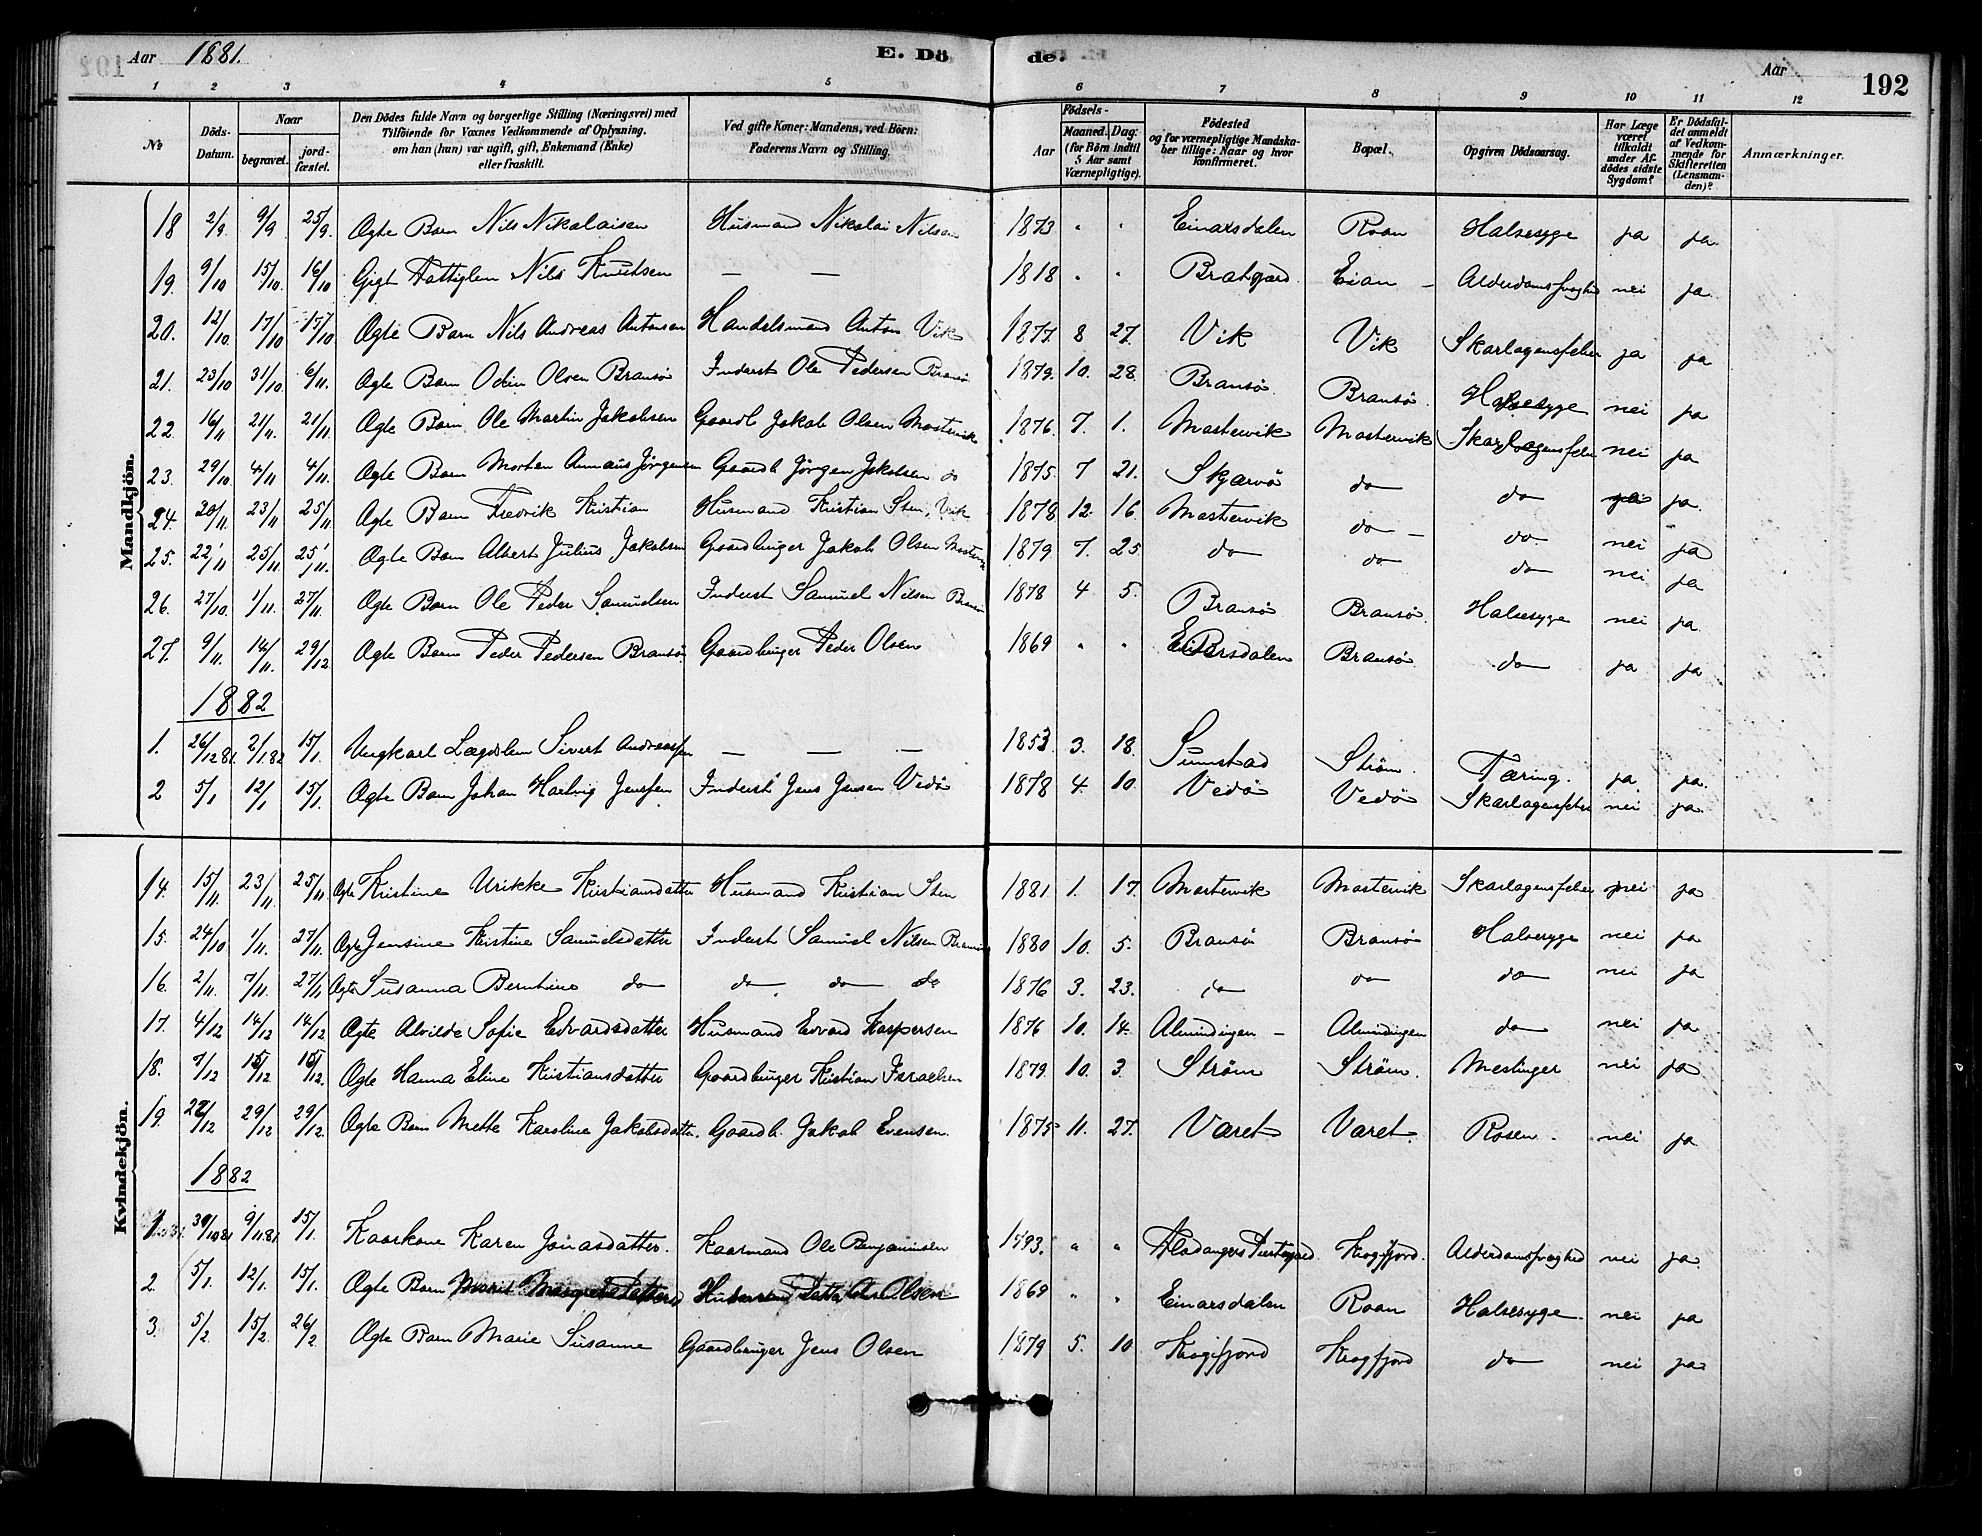 Aar 1881. E. Döde. Aar 192
1 2 3 4 5 6 7 8 9 10 11 12
№ Döds-Datum. Naar begravet. jordfæstet. Den Dödes fulde Navn og borgerlige Stilling (Næringsvei) med Tilföiende for Voxnes Vedkommende af Oplysning, om han (hun) var ugift, gift, Enkemand (Enke) eller fraskilt. Ved gifte Koner: Mandens, ved Börn: Faderens Navn og Stilling. Födsels- Aar Maaned. Dag: (for Börn indtil 5 Aar samt Værnepligtige). Födested og for værnepligtige Mandskaber tillige: Naar og hvor konfirmeret. Bopæl. Opgiven Dödsaarsag. Har Læge været tilkaldt under Afdödes sidste Sygdom? Er Dödsfaldet anmeldt af Vedkommende for Skifteretten (Lensmanden)? Anmærkninger.
Mandkjön.
18 2/9. 9/9 25/9. Ægte Barn Nils Nikolaisen Husmand Nikolai Nilsen 1873 " " Einarsdalen Roan Halsesyge ja ja.
19. 9/10 15/10. 16/10 Gigt Fattiglem Nils Knutsen — — 1818 " " Bratgjærd. Eian — Alderdomssvaghed nei ja.
20. 12/10. 17/10 17/10 Ægte Barn Nils Andreas Antonsen Handelsmand Anton Vik 1877. 8 27. Vik Vik Skarlagensfeber ja ja
21. 23/10 31/10. 6/11. Ægte Barn Odin Olsen Bransø Inderst Ole Pedersen Bransø 1879. 10. 28. Bransø Bransø. Halsesyge nei ja
22. 16/11 21/11. 21/11. Ægte Barn Ole Martin Jakobsen Gaardb Jakob Olsen Mastervik 1876. 7. 1. Mastervik Mastervik Skarlagensfeber nei ja
23. 29/10. 4/11 4/11. Ægte Barn Morten Annæus Jörgensen Gaardb Jörgen Jakobsen do 1875. 7 21. Skjærvø do do ja.
24. 20/11. 23/11 25/11 Ægte Barn Fredrik Kristian Husmand Kristian Sten, Vik 1878 12. 16. Mastervik do — do nei ja
25. 22/11 25/11 25/11. Ægte Barn Albert Julius Jakobsen Gaardbruger Jakob Olsen Mastervik 1879 7. 25. do do do nei ja
26. 27/10. 1/11. 27/11. Ægte Barn Ole Peder Samuelsen Inderst Samuel Nilsen Bransø 1878 4 5. Bransø Bransø. Halsesyge nei ja.
27. 9/11. 14/11. 29/12 Ægte Barn Peder Pedersen Bransø. Gaardbruger Peder Olsen 1869 " " Einarsdalen Bransø do ja ja
1882
1. 26/12 81. 2/1.82 15/1. Ungkarl Lægdslem Sivert Andreassen — — — 1853. 3. 18. Sumstad Strøm. Tæring. ja ja.
2 5/1 12/1 15/1. Ægte Barn Johan Hartvig Jenssen Inderst Jens Jensen Vedø 1878 4. 10. Vedø Vedø Skarlagensfeber nei ja.
Kvindekjön.
14. 15/11. 23/11. 25/11. Ægte Kristine Urikke Kristiansdatter Husmand Kristian Sten 1881 1. 17. Mastervik Mastervik Skarlagensfeber nei ja
15. 24/10 1/11. 27/11. Ægte Jensine Kristine Samuelsdatter Inderst Samuel Nilsen Bransø 1880 10. 5. Bransø Bransø Halsesyge nei ja
16. 2/11. 7/11. 27/11 Ægte Susanna Berntine do do do do 1876 3. 23. do do do nei ja
17. 4/12 14/12 14/12 Ægte Alvilde Sofie Edvardsdatter Husmand Edvard Kaspersen 1876 10. 14. Almindingen — Almindingen do nei ja
18. 7/12 15/12 15/12. Ægte Hanna Eline Kristiansdatter Gaardbruger Kristian Israelsen 1879. 10. 3. Strøm Strøm. Meslinger nei ja
19. 28/12 29/12 29/12. Ægte Barn Mette Karoline Jakobsdatter. Gaardb. Jakob Evensen. 1875 11. 27. Været Været. Rosen. nei ja
1882
1. 30/10 81 9/11.81 15/1. Kaarkone Karen Jonasdatter. Kaarmand Ole Benjaminsen 1793. " " Krogfjord. Alderdomssvaghed nei ja.
2. 5/1. 12/1. 15/1. Ægte Barn Olsen 1869 " " Einarsdalen Roan Halsesyge. nei ja
3. 5/2 15/2. 26/2 Ægte Barn Marie Susanne Gaardbruger Jens Olsen 1879 5. 10 Krogfjord Krogfjord do nei ja